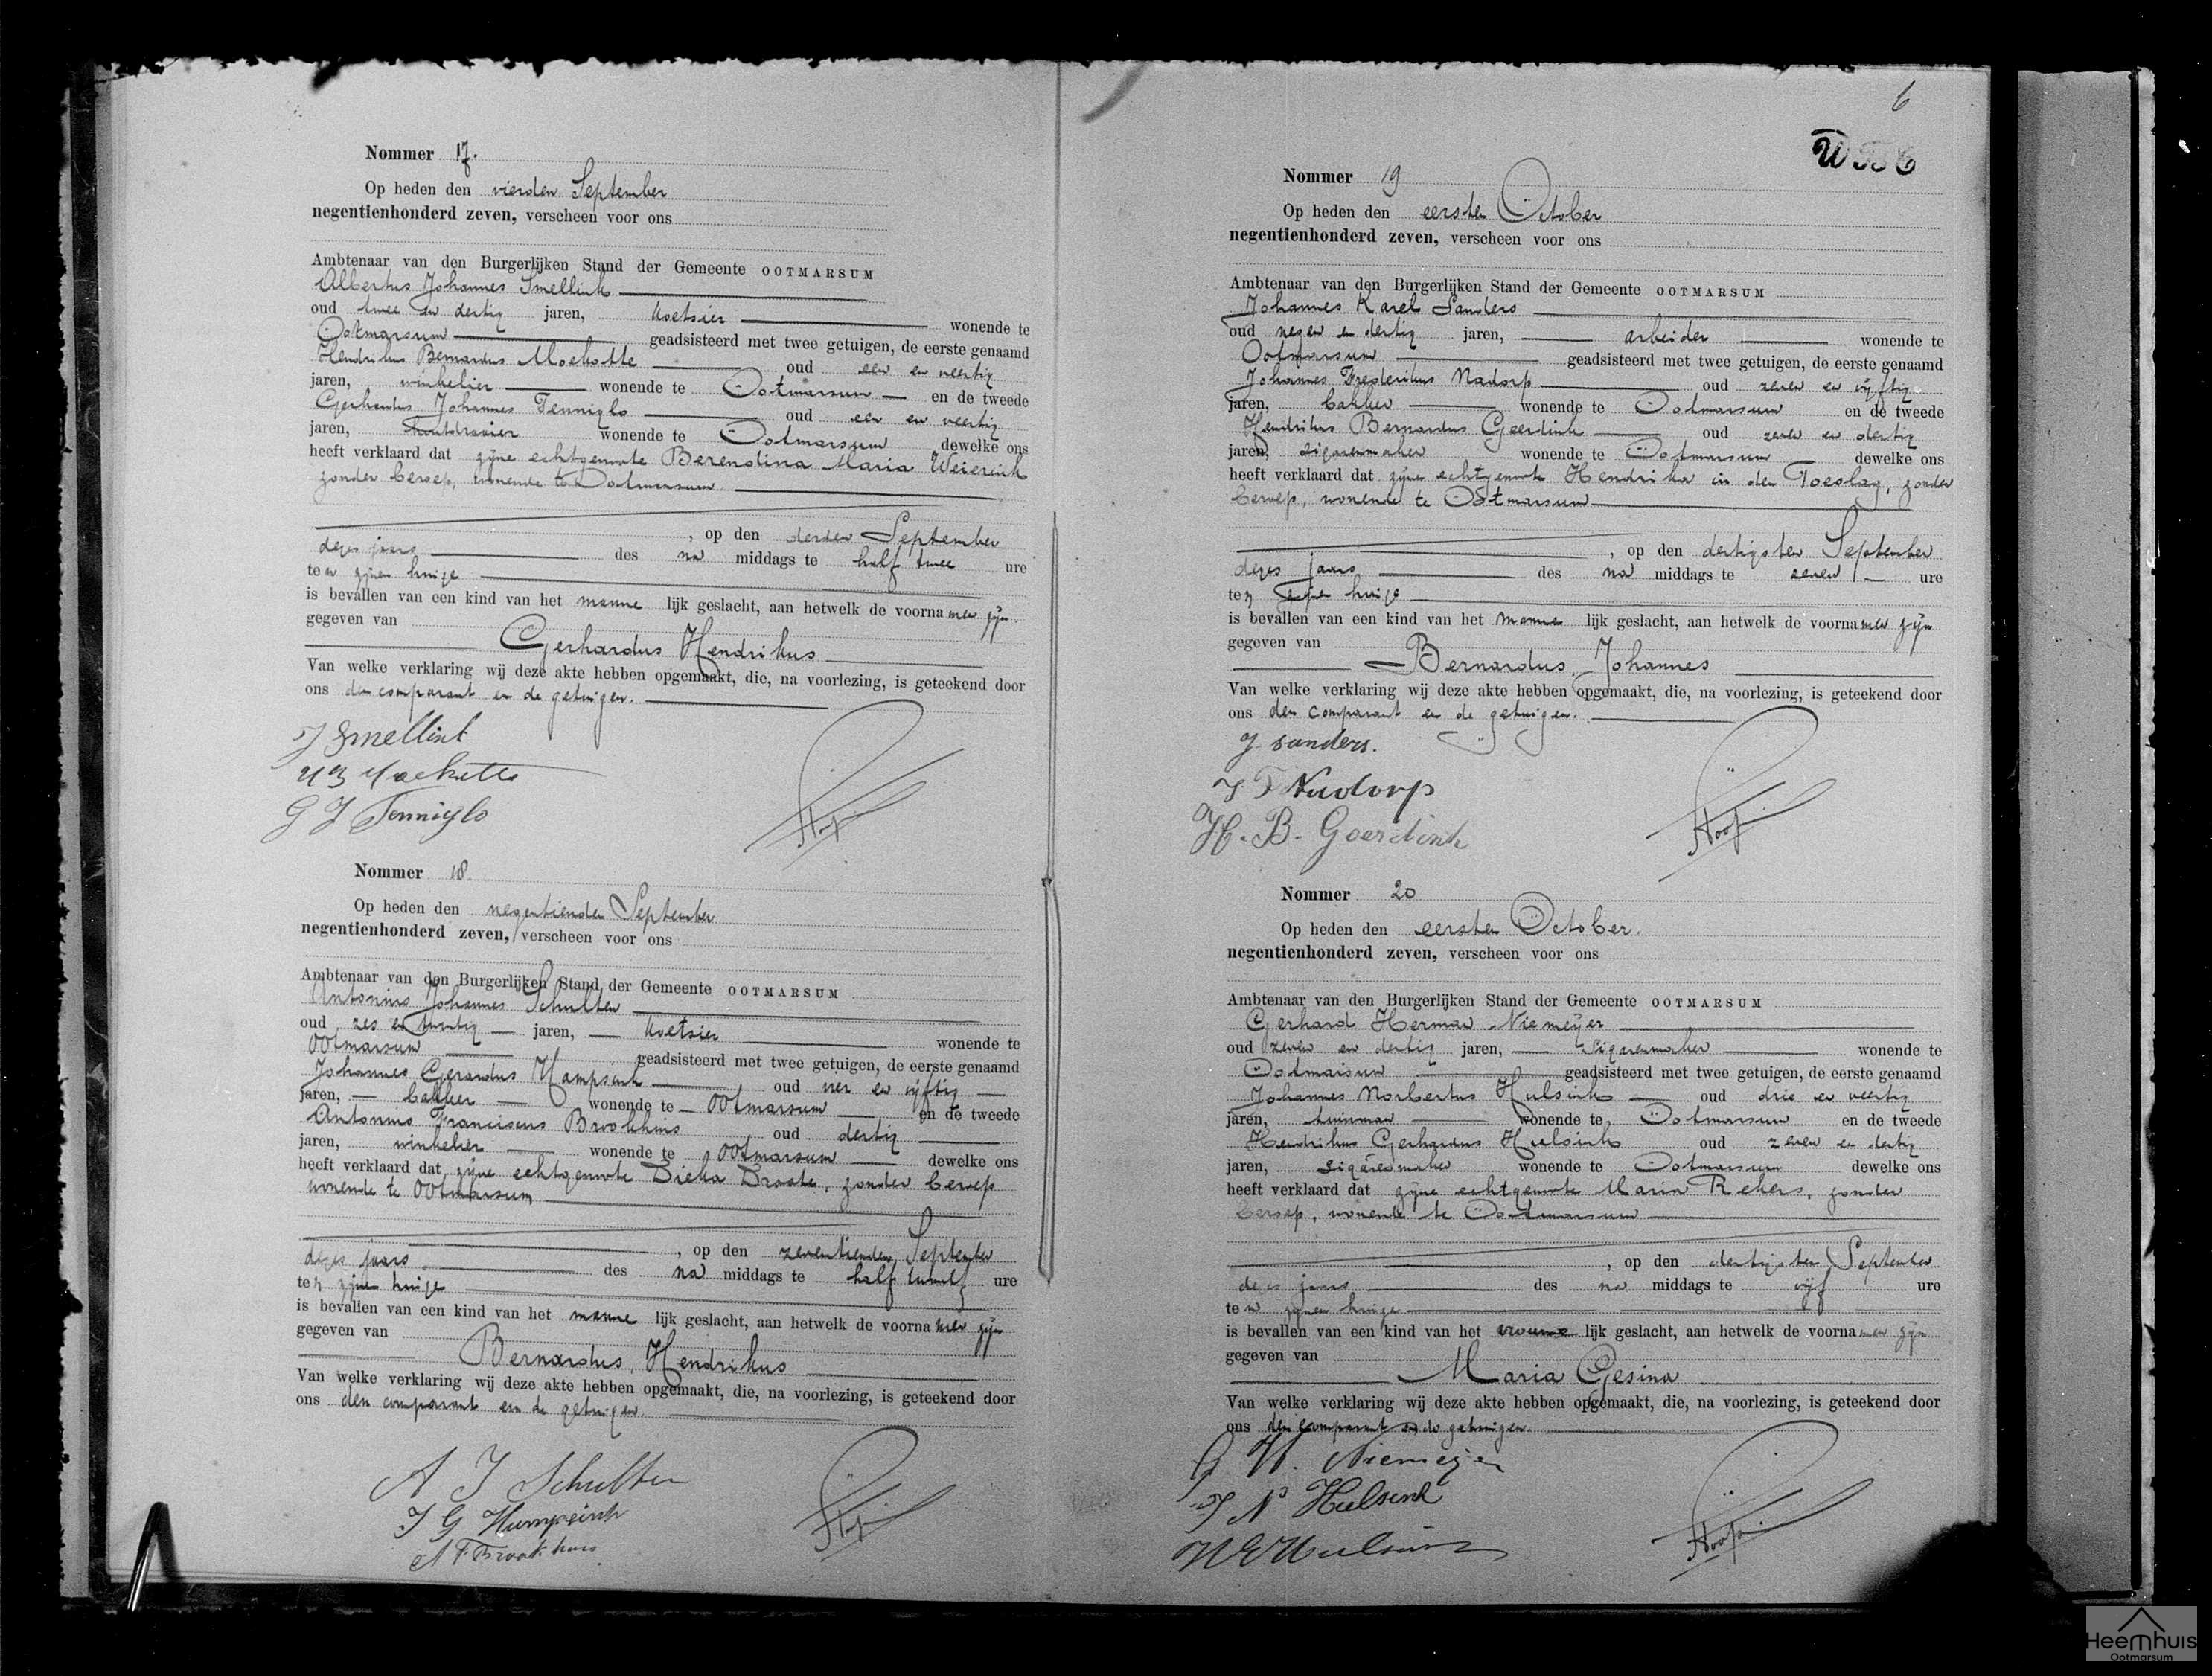 Nommer 17.
Op heden den vierden September
negentienhonderd zeven, verscheen voor ons
Ambtenaar van den Burgerlijken Stand der Gemeente OOTMARSUM
Albertus Johannes Smellink
oud twee en dertig jaren, koetsier wonende te
Ootmarsum geadsisteerd met twee getuigen, de eerste genaamd
Hendrikus Bernardus Moekotte oud een en veertig
jaren, winkelier wonende te Ootmarsum en de tweede
Gerhardus Johannes Tenniglo oud een en veertig
jaren, houtdraaier wonende te Ootmarsum dewelke ons
heeft verklaard dat zijne echtgenoote Berendina Maria Weierink
zonder beroep, wonende te Ootmarsum
, op den derden September
dezes jaars des na middags te half twee ure
ten zijnen huize
is bevallen van een kind van het manne lijk geslacht, aan hetwelk de voorna men zijn
gegeven van
Gerhardus Hendrikus
Van welke verklaring wij deze akte hebben opgemaakt, die, na voorlezing, is geteekend door
ons den comparant en de getuigen.
J Smellink
HB Moekotte
G J Tenniglo
Nommer 18.
Op heden den negentienden September
negentienhonderd zeven, verscheen voor ons
Ambtenaar van den Burgerlijken Stand der Gemeente OOTMARSUM
Antonius Johannes Schulten
oud zes en twintig jaren, koetsier wonende te
Ootmarsum geadsisteerd met twee getuigen, de eerste genaamd
Johannes Gerardus Hampsink oud vier en vijftig
jaren, bakker wonende te Ootmarsum en de tweede
Antonius Franciscus Brookhuis oud dertig
jaren, winkelier wonende te Ootmarsum dewelke ons
heeft verklaard dat zijne echtgenoote Dieka Droste, zonder beroep
wonende te Ootmarsum
, op den zeventienden September
dezes jaars des na middags te half twaalf ure
ten zijnen huize
is bevallen van een kind van het manne lijk geslacht, aan hetwelk de voorna men zijn
gegeven van
Bernardus Hendrikus
Van welke verklaring wij deze akte hebben opgemaakt, die, na voorlezing, is geteekend door
ons den comparant en de getuigen
A J Schulten
J G Hampsink
A F Brookhuis
6
Nommer 19
Op heden den eersten October
negentienhonderd zeven, verscheen voor ons
Ambtenaar van den Burgerlijken Stand der Gemeente OOTMARSUM
Johannes Karel Sanders
oud negen en dertig jaren, arbeider wonende te
Ootmarsum geadsisteerd met twee getuigen, de eerste genaamd
Johannes Frederikus Nadorp oud zeven en vijftig
jaren, bakker wonende te Ootmarsum en de tweede
Hendrikus Bernardus Geerdink oud zeven en dertig
jaren, sigarenmaker wonende te Ootmarsum dewelke ons
heeft verklaard dat zijne echtgenoote Hendrika in den Toeslag, zonder
beroep, wonende te Ootmarsum
, op den dertigsten September
dezes jaars des na middags te zeven ure
ten zijnen huize
is bevallen van een kind van het manne lijk geslacht, aan hetwelk de voorna men zijn
gegeven van
Bernardus Johannes
Van welke verklaring wij deze akte hebben opgemaakt, die, na voorlezing, is geteekend door
ons den comparant en de getuigen.
J sanders.
J F Nadorp
H. B. Geerdink
Nommer 20
Op heden den eersten October.
negentienhonderd zeven, verscheen voor ons
Ambtenaar van den Burgerlijken Stand der Gemeente OOTMARSUM
Gerhard Herman Niemeijer
oud zeven en dertig jaren, sigarenmaker wonende te
Ootmarsum geadsisteerd met twee getuigen, de eerste genaamd
Johannes Norbertus Hulsink oud drie en veertig
jaren, tuinman wonende te Ootmarsum en de tweede
Hendrikus Gerhardus Hulsink oud zeven en dertig
jaren, sigarenmaker wonende te Ootmarsum dewelke ons
heeft verklaard dat zijne echtgenoote Maria Rekers, zonder
beroep, wonende te Ootmarsum
, op den dertigsten September
dezes jaars des na middags te vijf ure
ten zijnen huize
is bevallen van een kind van het vrouwe lijk geslacht, aan hetwelk de voorna men zijn
gegeven van
Maria Gesina
Van welke verklaring wij deze akte hebben opgemaakt, die, na voorlezing, is geteekend door
ons den comparant en de getuigen.
G. H. Niemeijer
J N Hulsink
H G Hulsink
Heemhuis
Ootmarsum